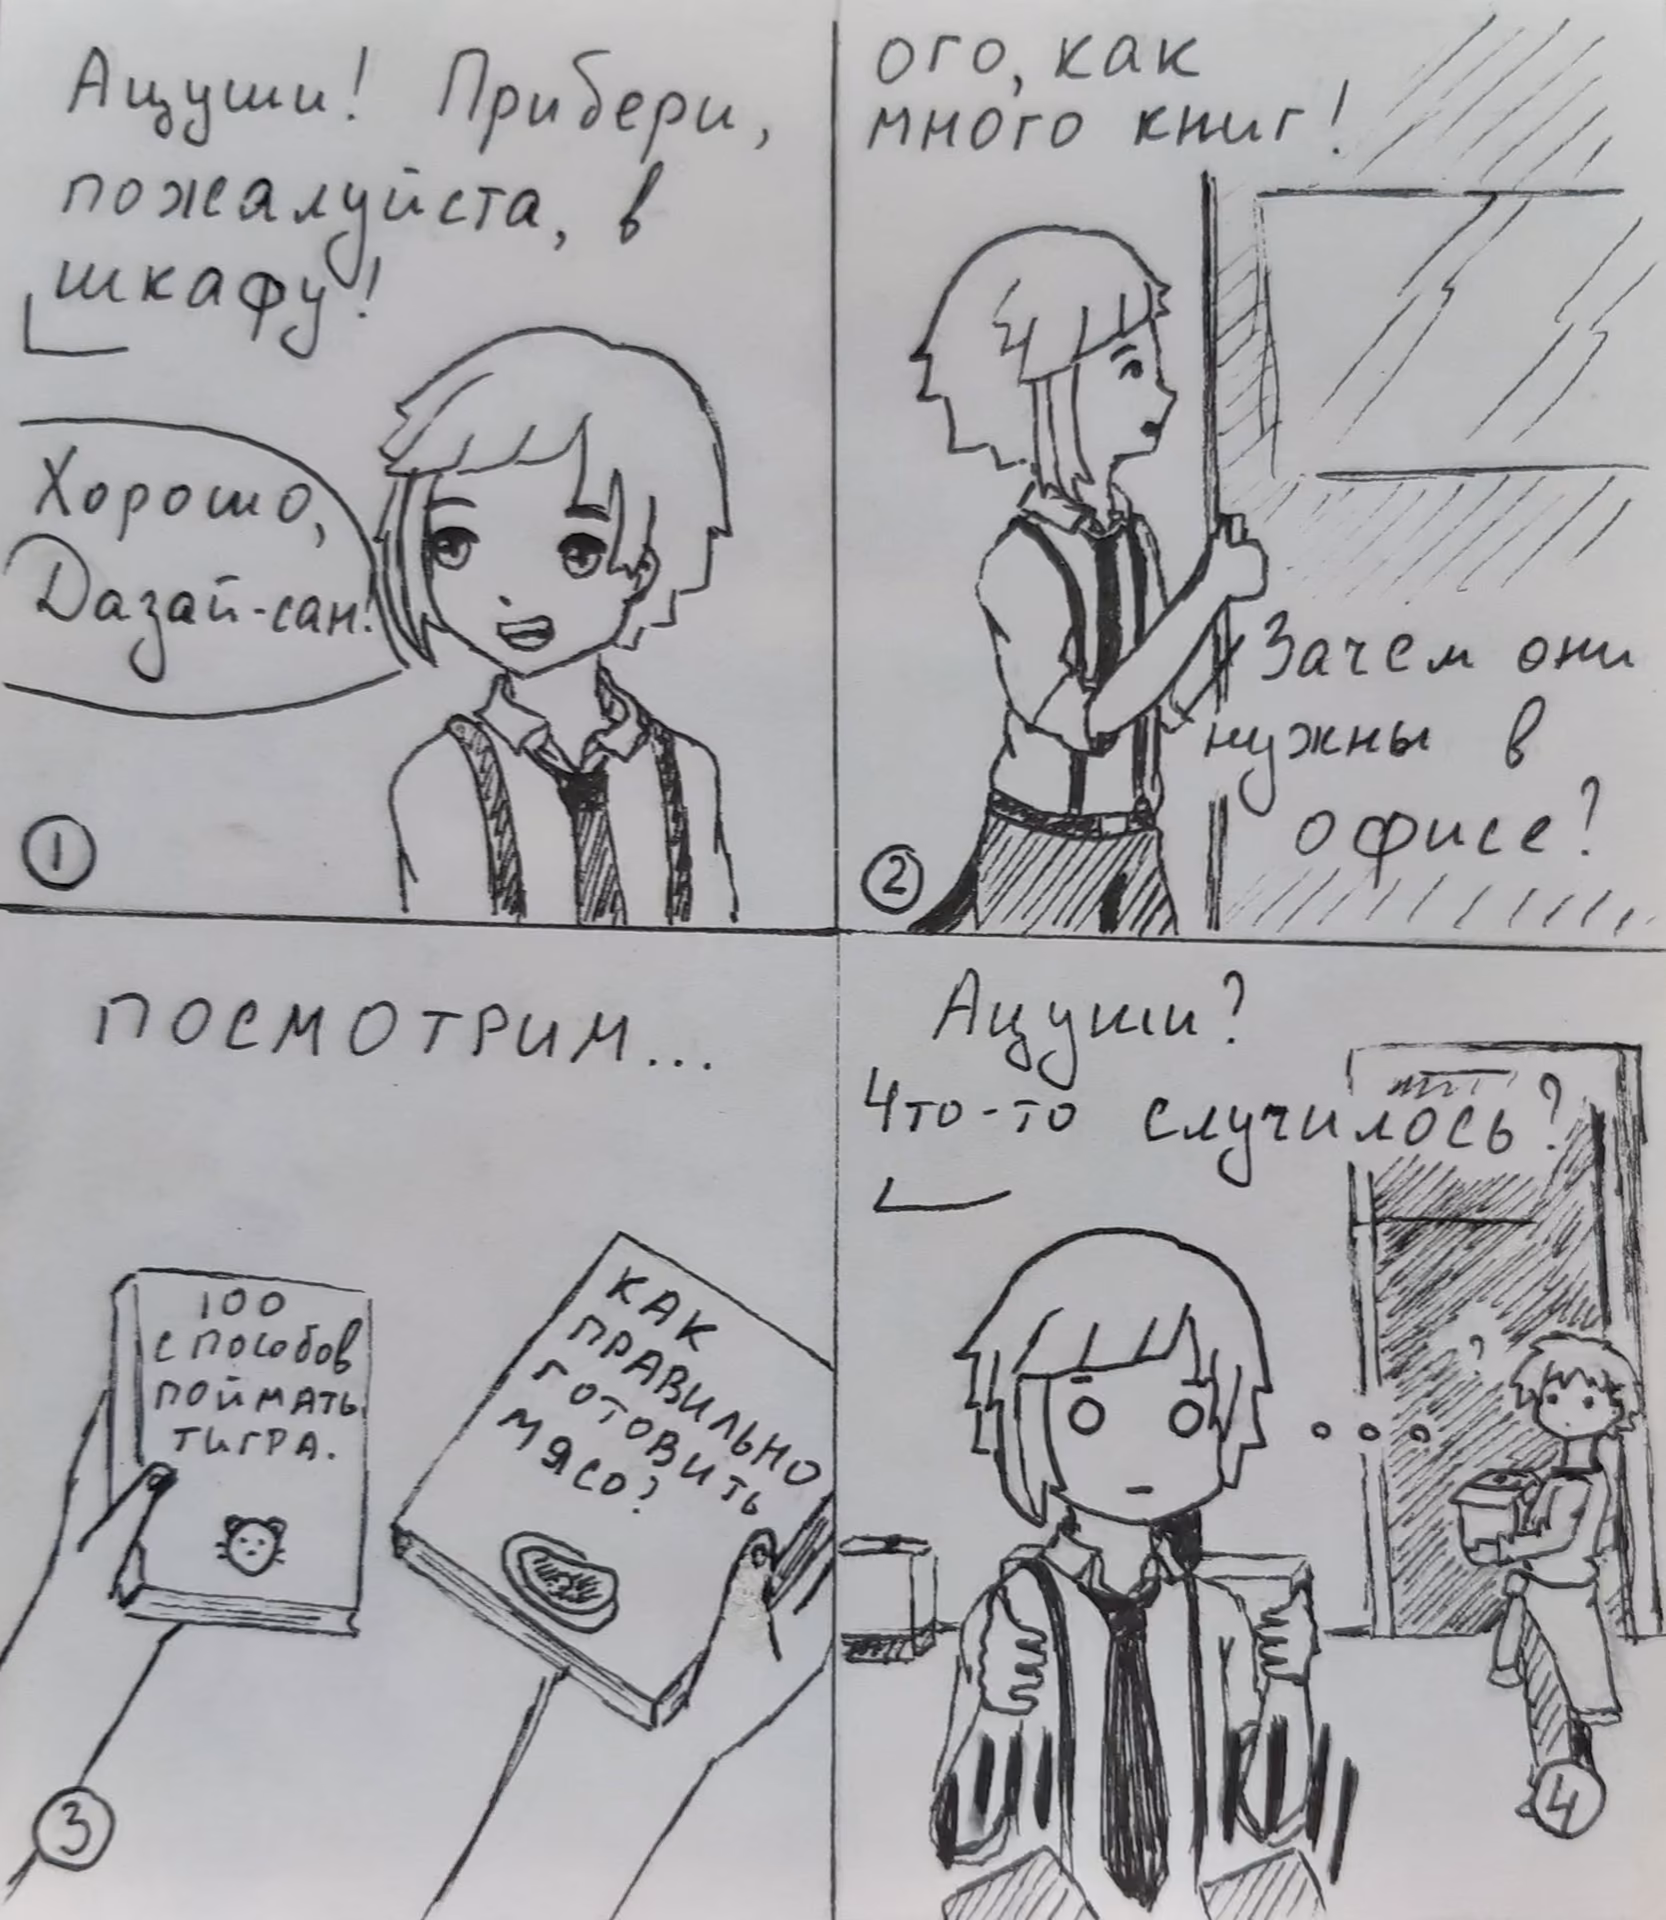 Ацуши! Прибери,
пожалуйста, в
шкафу!
Хорошо,
Дазай-сан!
1
ого, как
много книг!
Зачем они
нужны в
офисе?
2
ПОСМОТРИМ...
100
способов
поймать
тигра.
КАК
ПРАВИЛЬНО
ГОТОВИТЬ
МЯСО?
3
Ацуши?
Что-то случилось?
?
4